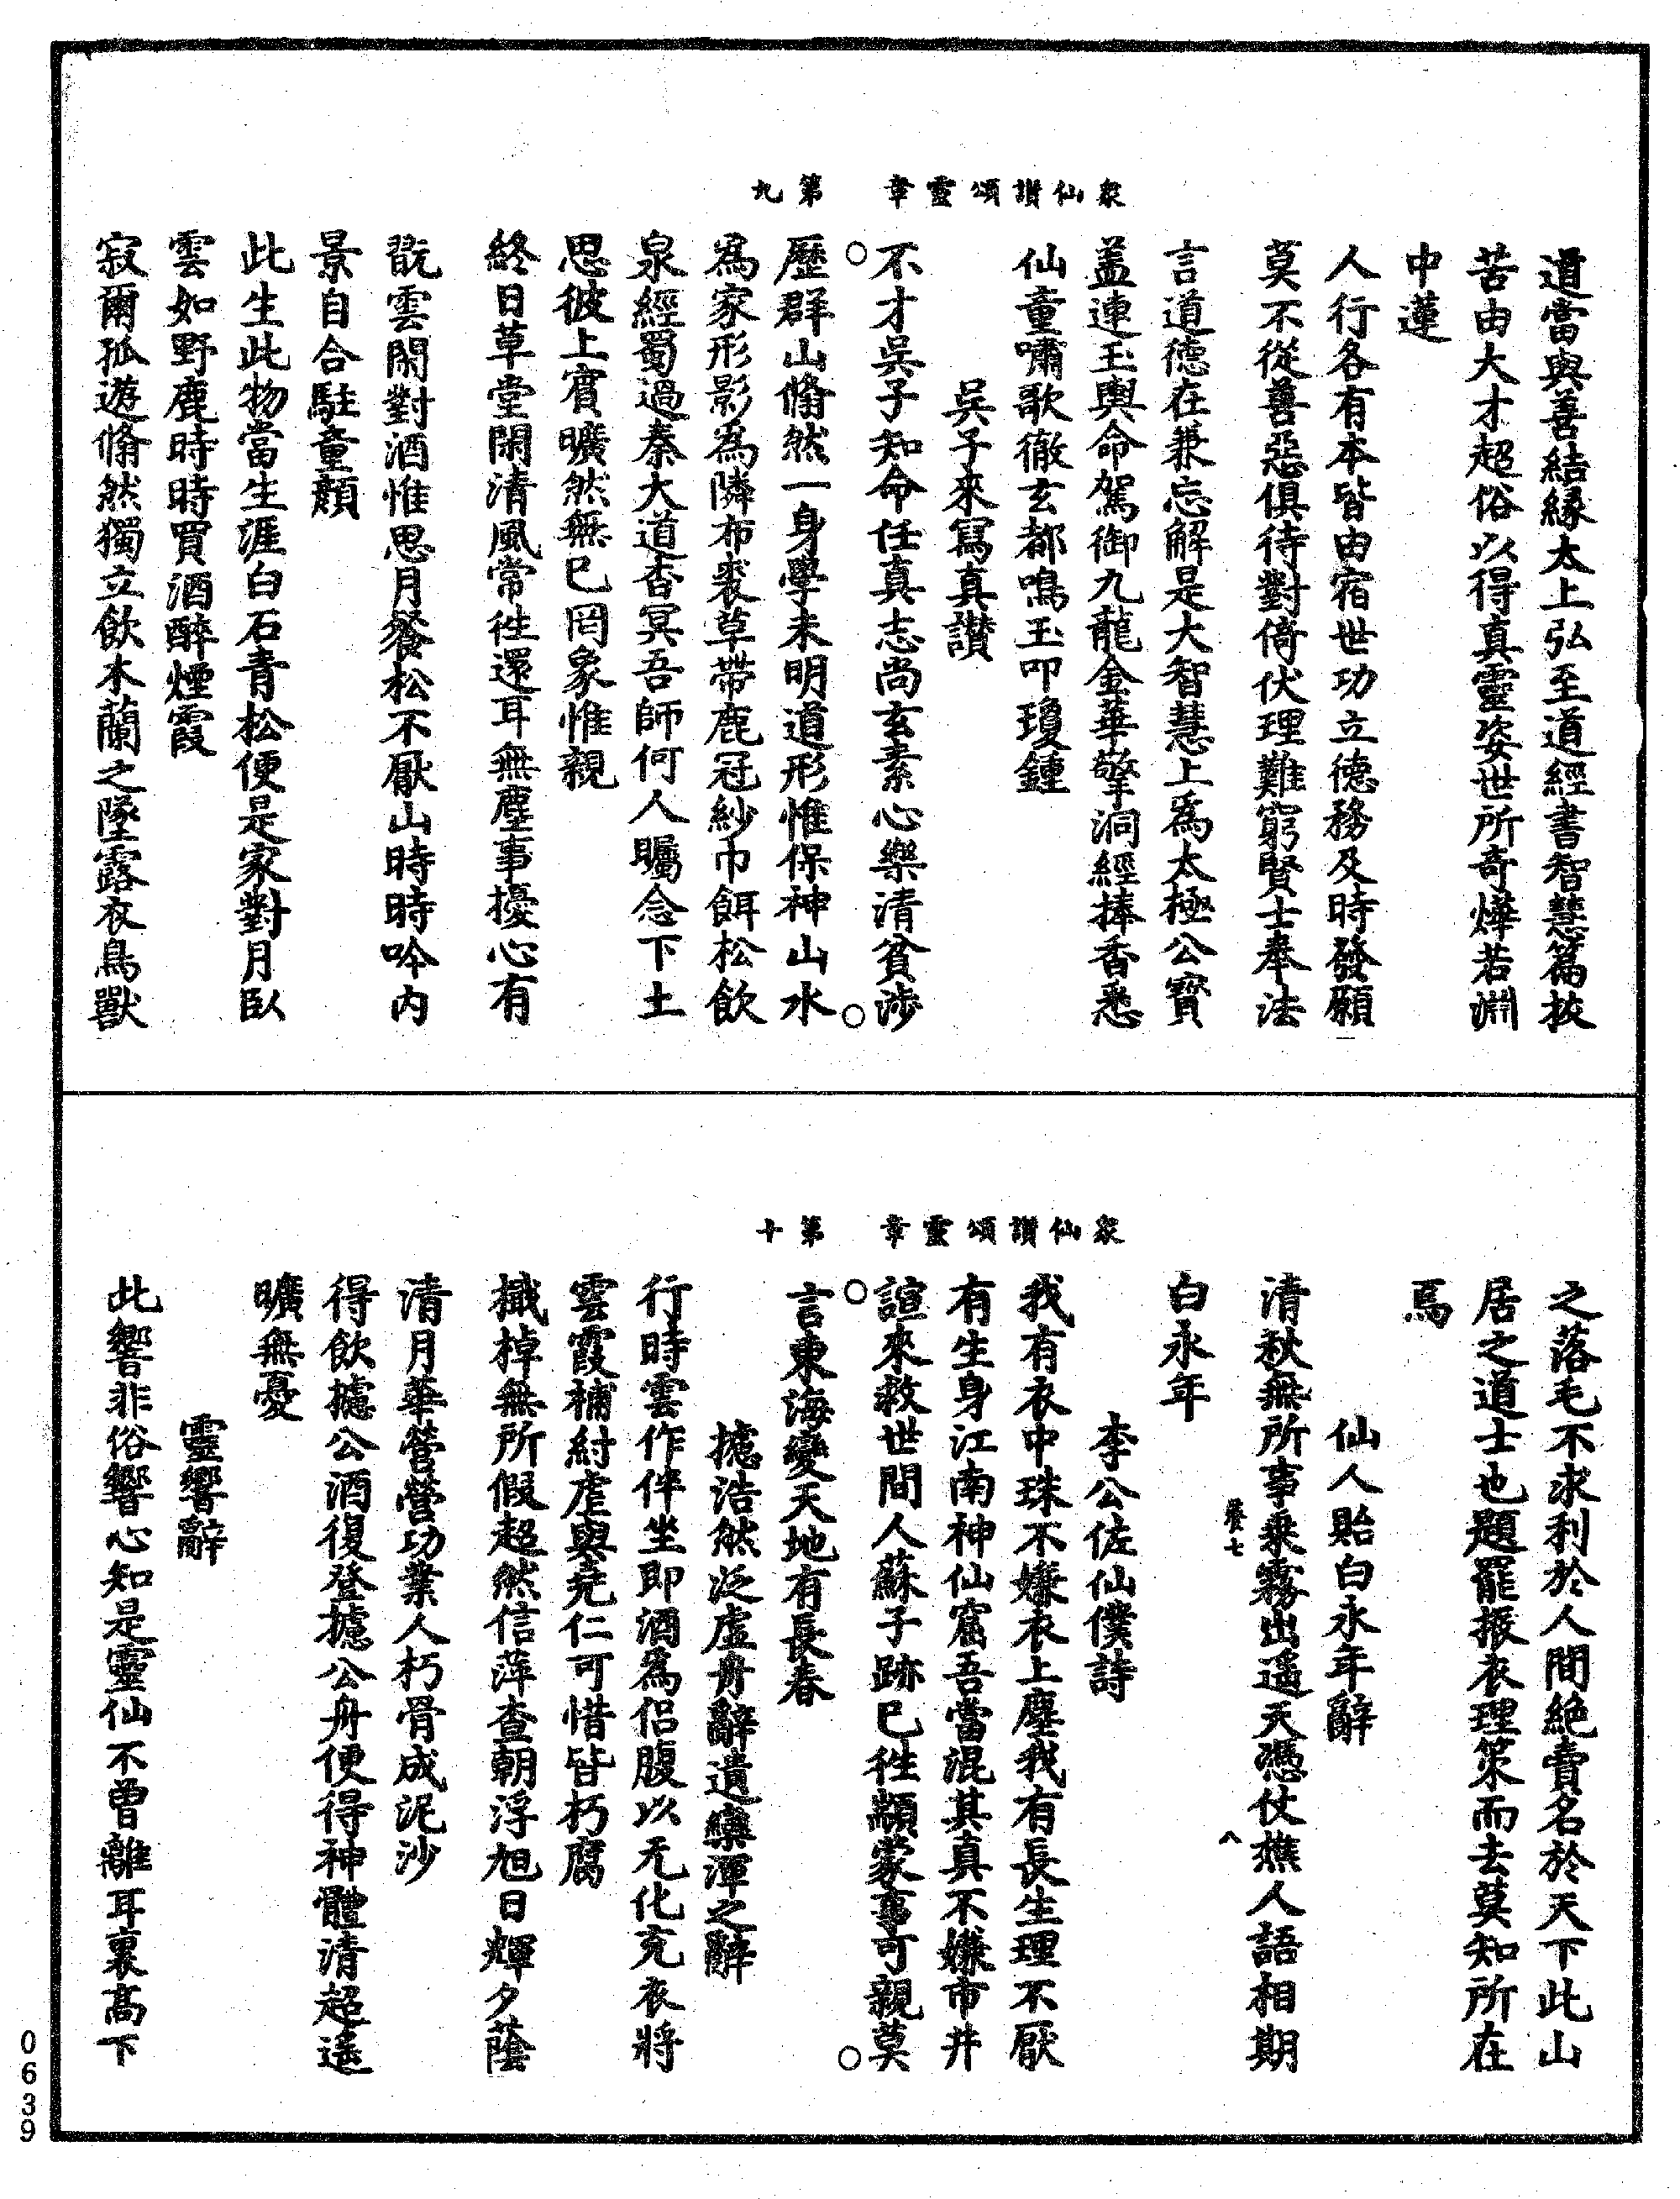 道當與善結緣太上弘至道經書智慧篇拔
苦由大才超俗以得真靈姿世所奇燁若淵
中蓮
人行各有本皆由宿世功立德務及時發願
莫不從善惡俱待對倚伏理難窮賢士奉法
言道德在兼忘解是大智慧上為太極公寶
盖連玉輿命駕御九龍金華擎洞經捧香悉
仙童嘯歌徹玄都鳴玉叩瓊鍾
吳子來寫真讃
不才吳子知命任真志尚玄素心樂清貧涉
眾仙讃頌靈章　第九
歷群山翛然一身學未明道形惟保神山水
為家形影為隣布裘草帶鹿冠紗巾餌松飲
泉經蜀過秦大道杳冥吾師何人矚念下土
思彼上賓曠然無已罔象惟親
終日草堂閑清風常往還耳無塵事擾心有
翫雲閑對酒惟思月餐松不厭山時時吟内
景自合駐童顏
此生此物當生涯白石青松便是家對月臥
雲如野鹿時時買酒醉煙霞
寂爾孤遊翛然獨立飲木蘭之墜露衣鳥獸
之落毛不求利於人間絕賣名於天下此山
居之道士也題罷振衣理策而去莫知所在
焉
仙人貽白永年辭
清秋無所事乘霧出遥天憑仗樵人語相期
發七
白永年
李公佐仙僕詩
我有衣中珠不嫌衣上塵我有長生理不厭
有生身江南神仙窟吾當混其真不嫌市井
諠來救世間人蘇子跡已往顓蒙事可親莫
眾仙讃頌靈章　第十
言東海變天地有長春
攄浩然泛虛舟辭遺欒渾之辭
行時雲作伴坐即酒為侶腹以无化充衣將
雲霞補紂虐與堯仁可惜皆朽腐
檝棹無所假超然信萍查朝浮旭日輝夕蔭
清月華營營功業人朽骨成泥沙
得飲攄公酒復登攄公舟便得神體清超遥
曠無憂
靈響辭
此響非俗響心知是靈仙不曾離耳裏高下
0639